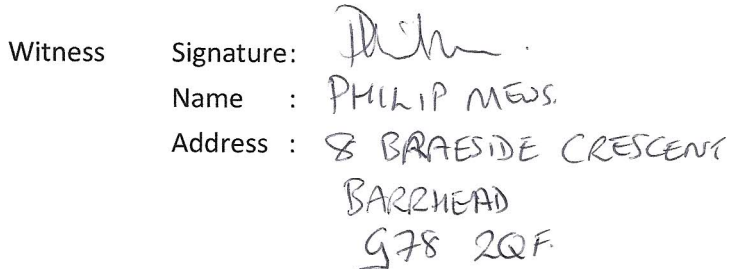 Witness Signature:
Name : PHILIP MEWS.
Address : 8 BRAESIDE CRESCENT
BARRHEAD
G78 2QF.